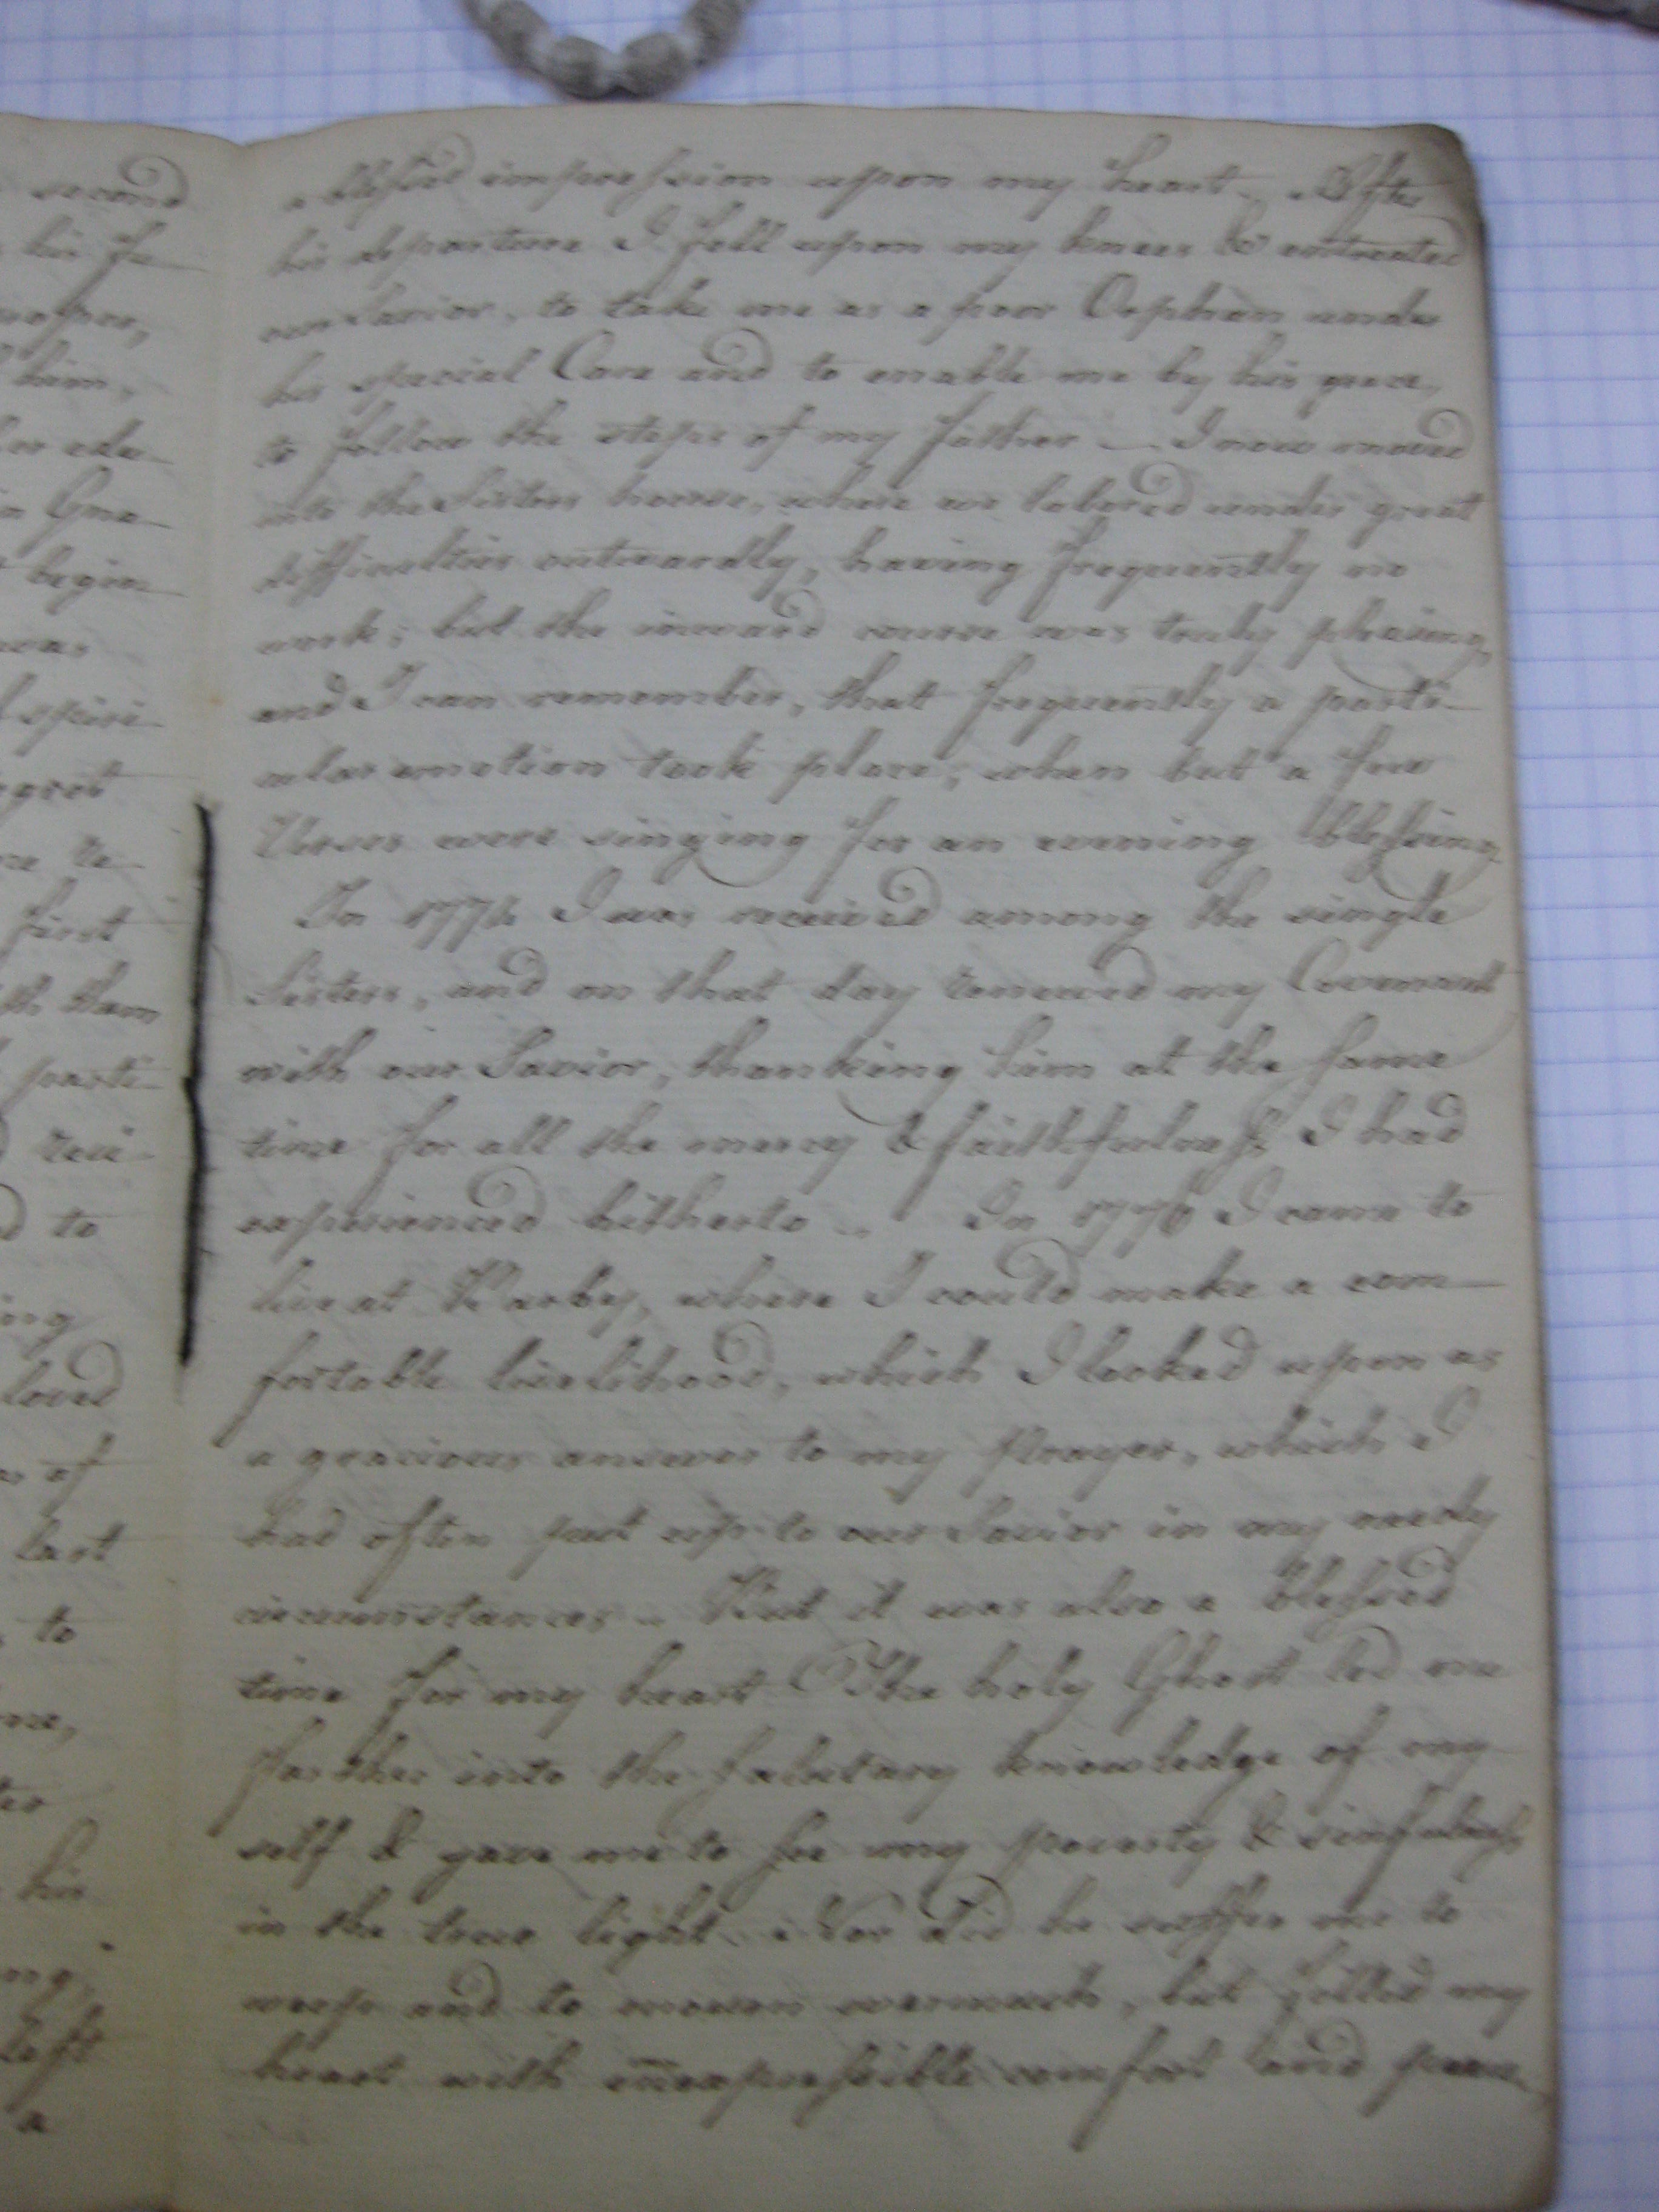 second
his
him,
begin
was
spiri-
first
parti-
to
loved
of
last
to
his
left
a
a blessed impression upon my heart. After
his departure I fell upon my knees & entreated
our Savior, to take me as a poor Orphan under
his special Care and to enable me by his grace,
to follow the steps of my father — I now moved
into the Sisters house, where we labored under great
difficulties outwardly, having frequently no
work; but the inward course was truly pleasing,
and I can remember, that frequently a parti-
cular emotion took place, when but a few
Verses were singing for an evening blessing.
In I was received among the single
Sisters, and on that day renewed my Covenant
with our Savior, thanking him at the same
time for all the mercy & faithfulness I had
experienced hitherto.. In 1776 I came to
live at where I could make a com-
fortable livelihood, which I looked upon as
a gracious answer to my Prayer, which I
had often put up to our Savior in my needy
circumstances.. But it was also a blessed
time for my heart The holy Ghost led me
farther into the salutary knowledge of my
self & gave me to see my poverty & sinfulness
in the true light.. Nor did he suffer me to
weep and to mourn overmuch, but filled my
heart with inexpressible comfort and peace